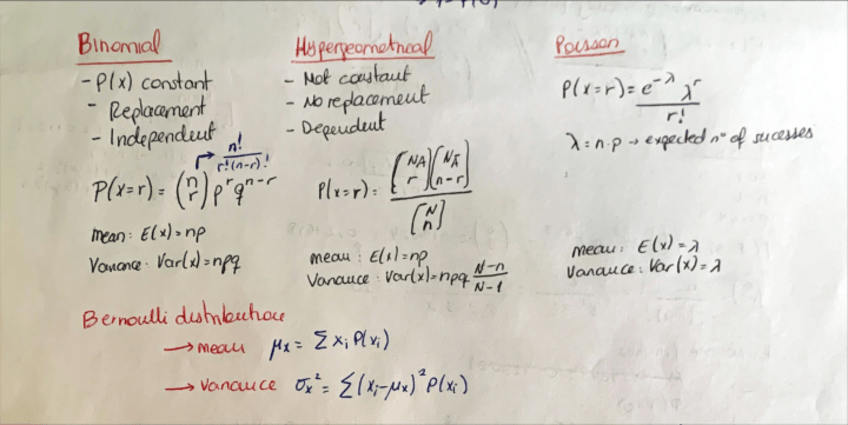 Binomial
- P(x) constant
- Replacement
- Independent
n! / r!(n-r)!
P(x=r) = (n r) p^r q^n-r
mean: E(x)=np
Variance: Var(x)=npq
Hypergeometrical
- Not constant
- No replacement
- Dependent
P(x=r): (NA r)(NĀ n-r) / (N n)
mean: E(x)=np
Variance: Var(x)=npq N-n / N-1
Poisson
P(x=r) = e^-λ λ^r / r!
λ = n·p → expected nº of sucesses
mean: E(x)=λ
Variance: Var(x)=λ
Bernoulli distribution
→ mean μx = Σ xi P(xi)
→ variance σx² = Σ(xi-μx)² P(xi)